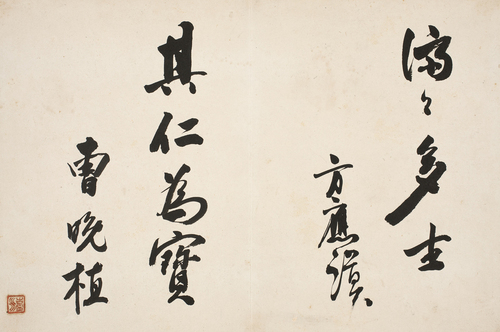 濟々多士
方應謨
其仁為寶
曹晚植